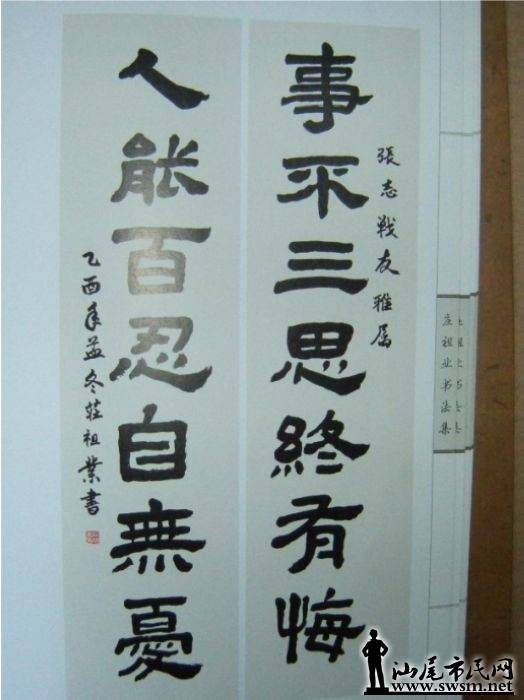 事不三思終有悔
張志戰友雅屬
人能百忍自無憂
乙酉年孟冬莊祖業書
庄祖业书法集
汕尾市民网
www.swsm.net